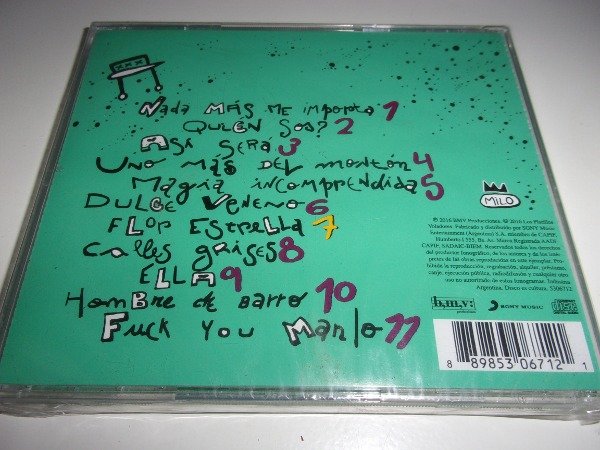 xxx
Nada MÁS ME importa 1
QUIEN SOS? 2
ASi SERÁ 3
UNO MÁS DEL montón 4
Magia incomprendida 5
DULCE VeNENO 6
FLOR ESTRELLA 7
Calles grises 8
ELLA 9
Hombre de barro 10
Fuck you Manlo 11
MILO
℗ 2016 BMV Producciones. © 2016 Los Platillos
Voladores. Fabricado y distribuido por SONY Music
Entertainment (Argentina) S.A. miembro de CAPIF,
Humberto I 555, Bs. As. Marca Registrada AADI-
CAPIF, SADAIC-BIEM. Reservados todos los derechos
del productor fonográfico, de los autores y de los intér-
pretes de las obras reproducidas en este ejemplar. Prohi-
bida la reproducción, regrabación, alquiler, préstamo,
canje, ejecución pública, radiodifusión y cualquier otro
uso no autorizado de estos fonogramas. Industria
Argentina, Disco es cultura. 5306712
b.m.v:
producciones
SONY MUSIC
COMPACT disc
DIGITAL AUDIO
8 89853 06712 1